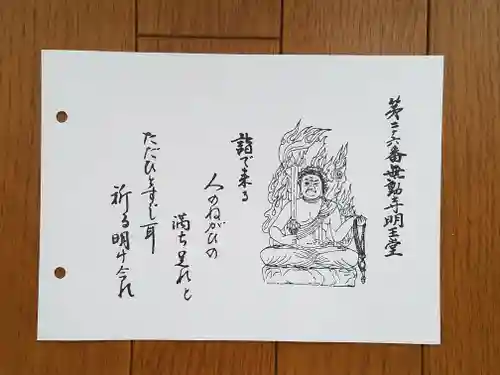 第二六番無動寺明王堂
詣で来る
人のねがひの
満ち足れと
ただひとすじ耳
祈る明け久れ